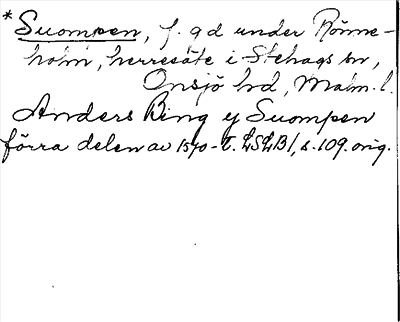 * Suompen, f. gd under Rönne-
holm, herresäte i Stehags sn,
Onsjö hd, Malm. l.
Anders Bing y Suompen
förra delen av 1570-t. LSLB 1, s. 109. orig.